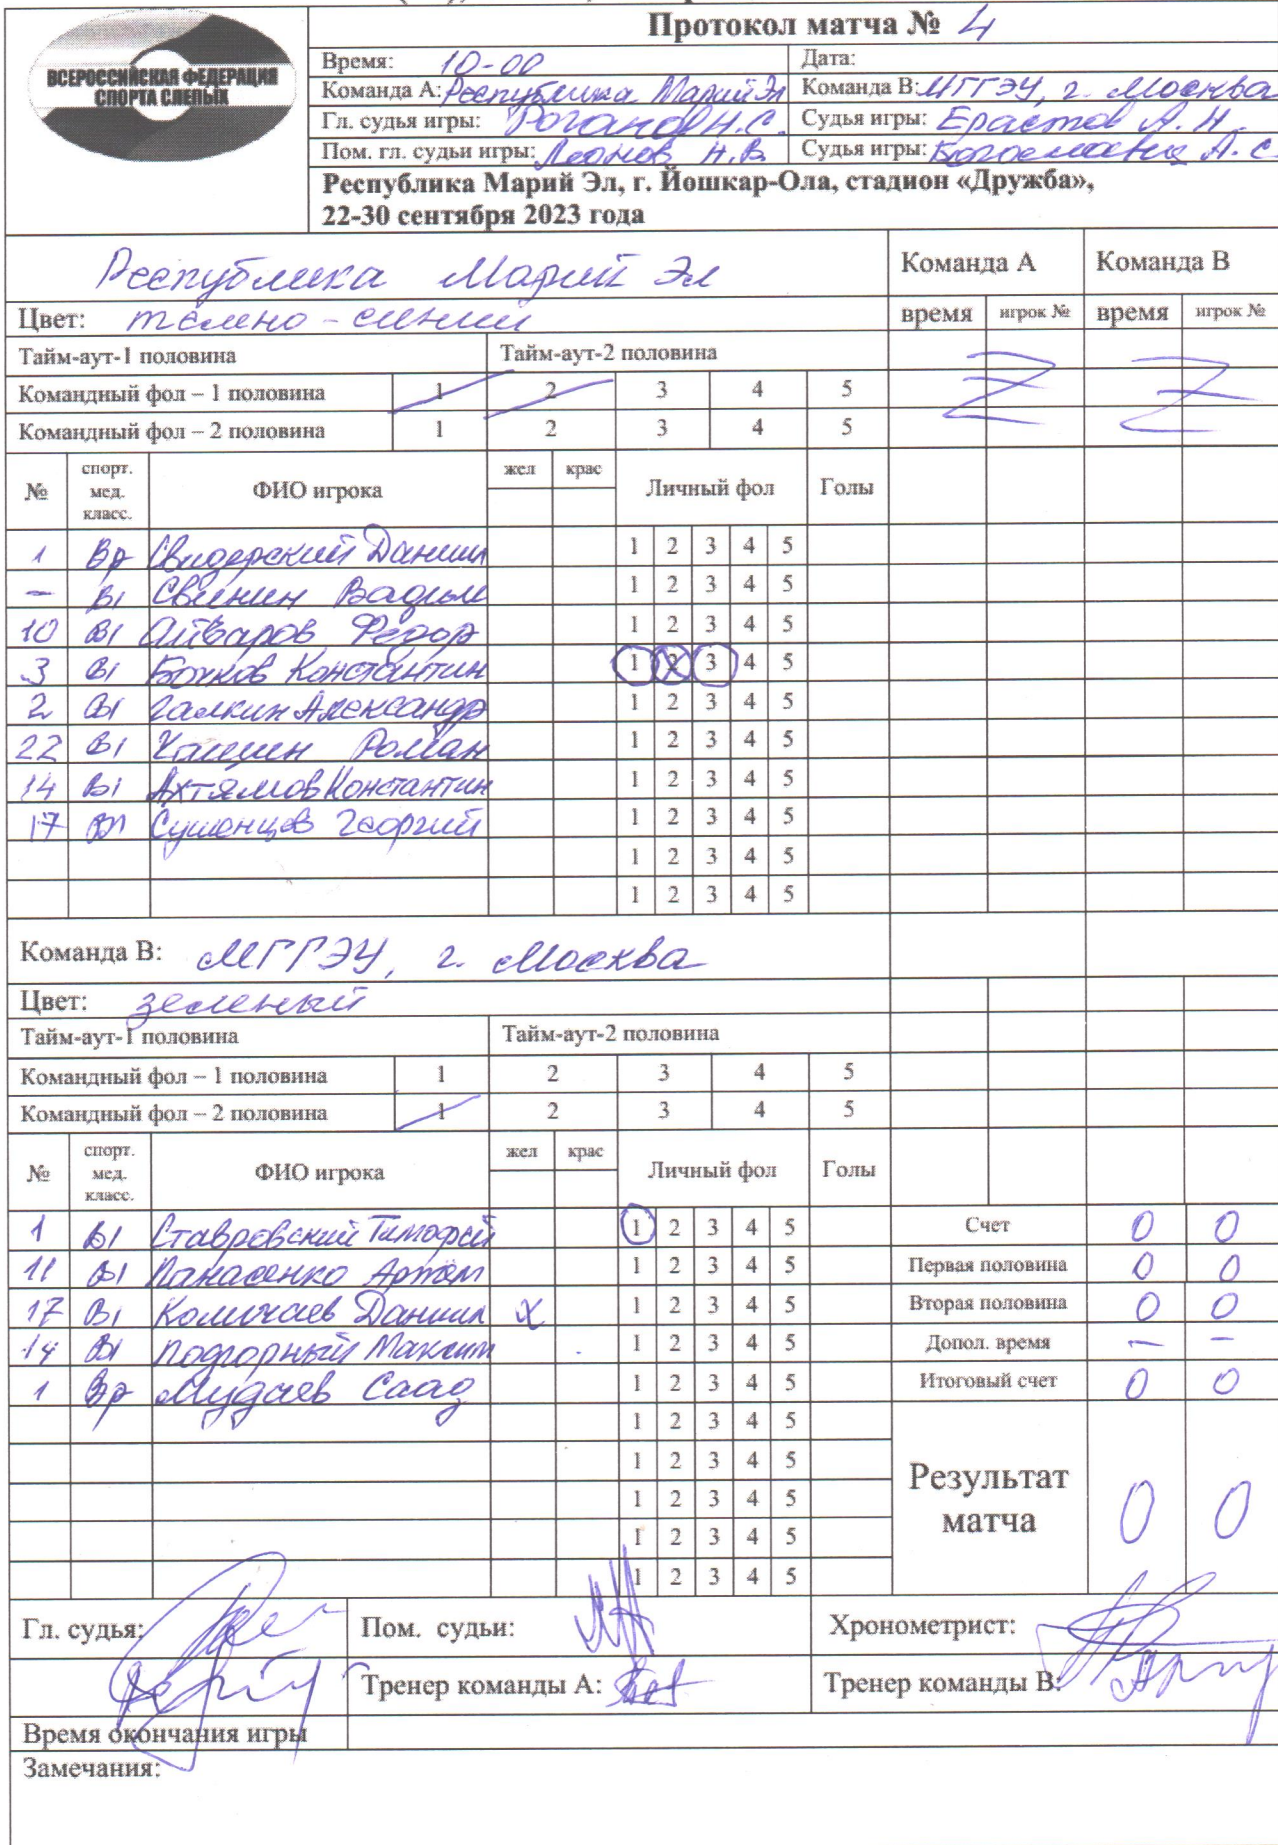 ВСЕРОССИЙСКАЯ ФЕДЕРАЦИЯ
СПОРТА СЛЕПЫХ
Протокол матча № 4
Время: 10-00 Дата:
Команда А: Республика Марий Эл Команда В: МГГЭУ, г. Москва
Гл. судья игры: Роганов Н.С. Судья игры: Ерастов А.Н.
Пом. гл. судьи игры: Леонов Н.В. Судья игры: А.С.
Республика Марий Эл, г. Йошкар-Ола, стадион «Дружба»,
22-30 сентября 2023 года
Республика Марий Эл Команда А Команда В
Цвет: темно-синий время игрок № время игрок №
Тайм-аут-1 половина Тайм-аут-2 половина
Командный фол – 1 половина 1 2 3 4 5
Командный фол – 2 половина 1 2 3 4 5
№ спорт. мед. класс. ФИО игрока жел крас Личный фол Голы
1 Вр Свидерский Даниил 1 2 3 4 5
– В1 Свинин Вадим 1 2 3 4 5
10 В1 Айваров Федор 1 2 3 4 5
3 В1 Бочков Константин 1 2 3 4 5
2 В1 Галкин Александр 1 2 3 4 5
22 В1 Роман 1 2 3 4 5
14 В1 Ахтямов Константин 1 2 3 4 5
17 В1 Сушенцов Георгий 1 2 3 4 5
1 2 3 4 5
1 2 3 4 5
Команда В: МГГЭУ, г. Москва
Цвет: зеленый
Тайм-аут-1 половина Тайм-аут-2 половина
Командный фол – 1 половина 1 2 3 4 5
Командный фол – 2 половина 1 2 3 4 5
№ спорт. мед. класс. ФИО игрока жел крас Личный фол Голы
1 В1 Ставровский Тимофей 1 2 3 4 5 Счет 0 0
11 В1 Панасенко Артём 1 2 3 4 5 Первая половина 0 0
17 В1 Даниил х 1 2 3 4 5 Вторая половина 0 0
14 В1 Подгорный Максим 1 2 3 4 5 Допол. время – –
1 Вр Мудаев Саад 1 2 3 4 5 Итоговый счет 0 0
1 2 3 4 5
1 2 3 4 5
1 2 3 4 5
1 2 3 4 5
1 2 3 4 5
Результат
матча 0 0
Гл. судья: Пом. судьи: Хронометрист:
Тренер команды А: Тренер команды В:
Время окончания игры
Замечания: